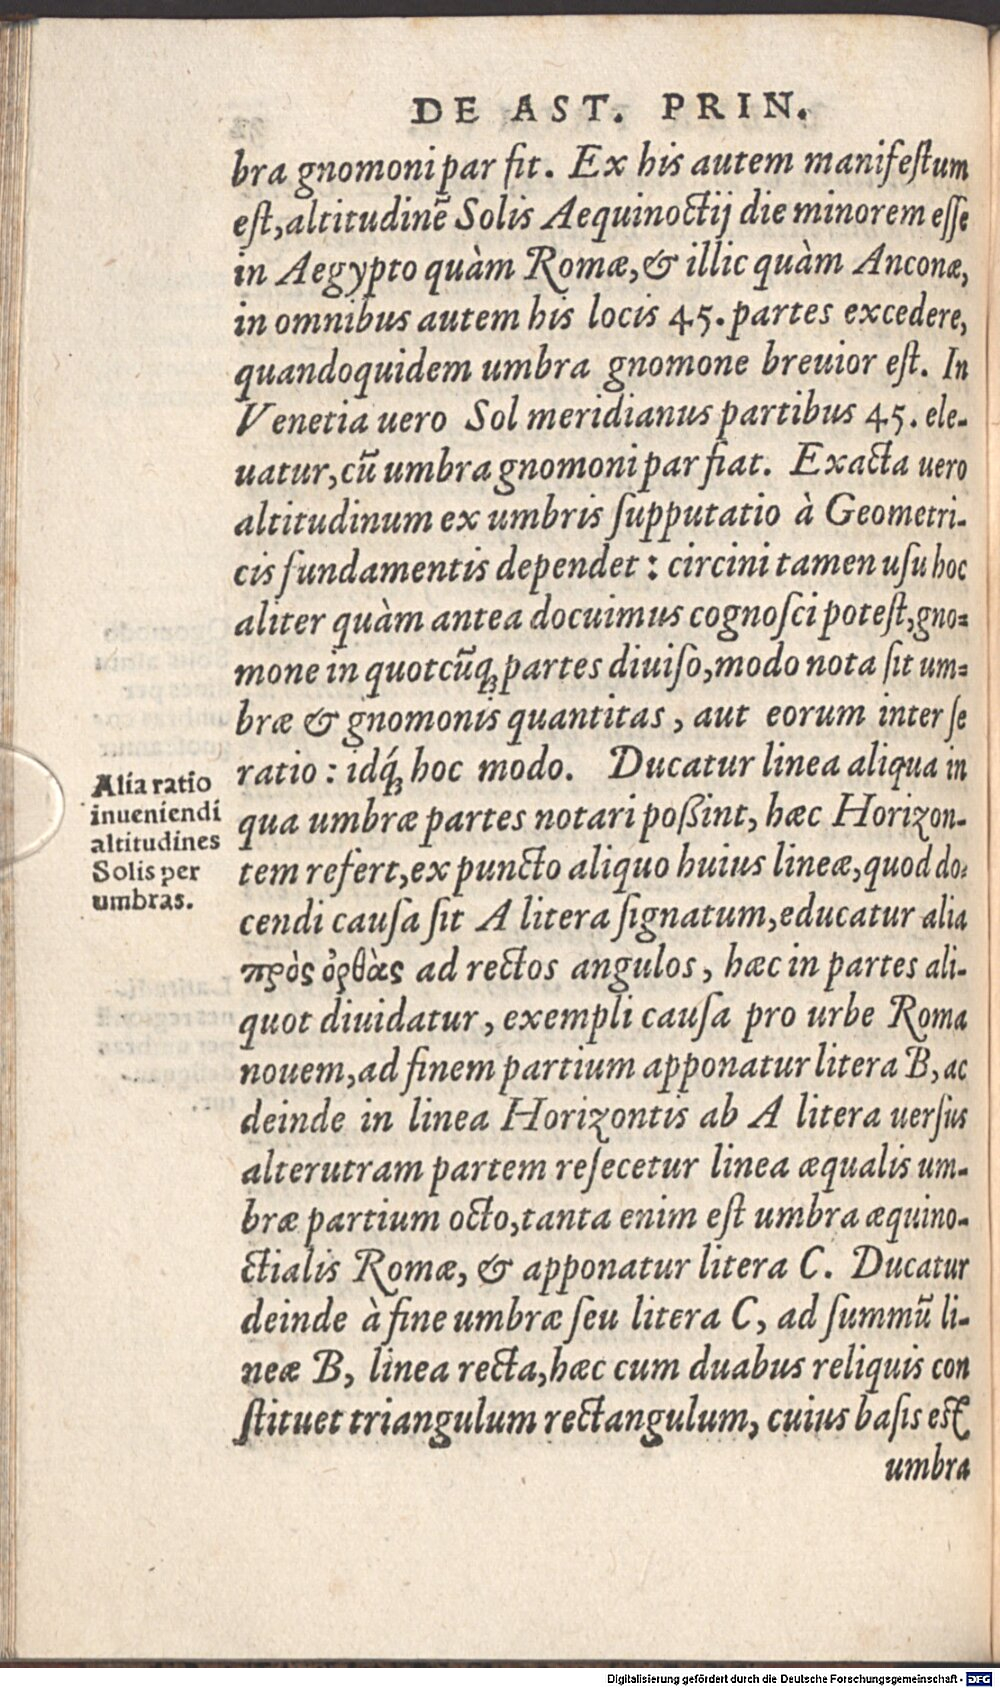 DE AST. PRIN.
bra gnomoni par ſit. Ex his autem manifeſtum
eſt, altitudinē Solis Aequinoctij die minorem eſſe
in Aegypto quàm Romæ, & illic quàm Anconæ,
in omnibus autem his locis 45. partes excedere,
quandoquidem umbra gnomone breuior eſt. In
Venetia uero Sol meridianus partibus 45. ele-
uatur, cū umbra gnomoni par fiat. Exacta uero
altitudinum ex umbris ſupputatio à Geometri-
cis fundamentis dependet: circini tamen uſu hoc
aliter quàm antea docuimus cognoſci poteſt, gno-
mone in quotcūq; partes diuiſo, modo nota ſit um-
bræ & gnomonis quantitas, aut eorum inter ſe
ratio: idq́; hoc modo. Ducatur linea aliqua in
qua umbræ partes notari poßint, hæc Horizon-
tem refert, ex puncto aliquo huius lineæ, quod do-
cendi cauſa ſit A litera ſignatum, educatur alia
πρὸς ὀρθὰς ad rectos angulos, hæc in partes ali-
quot diuidatur, exempli cauſa pro urbe Roma
nouem, ad finem partium apponatur litera B, ac
deinde in linea Horizontis ab A litera uerſus
alterutram partem reſecetur linea æqualis um-
bræ partium octo, tanta enim eſt umbra æquino-
ctialis Romæ, & apponatur litera C. Ducatur
deinde à fine umbræ ſeu litera C, ad ſummū li-
neæ B, linea recta, hæc cum duabus reliquis con
ſtituet triangulum rectangulum, cuius baſis eſt
umbra
Alia ratio
inueniendi
altitudines
Solis per
umbras.
Digitalisierung gefördert durch die Deutsche Forschungsgemeinschaft - DFG